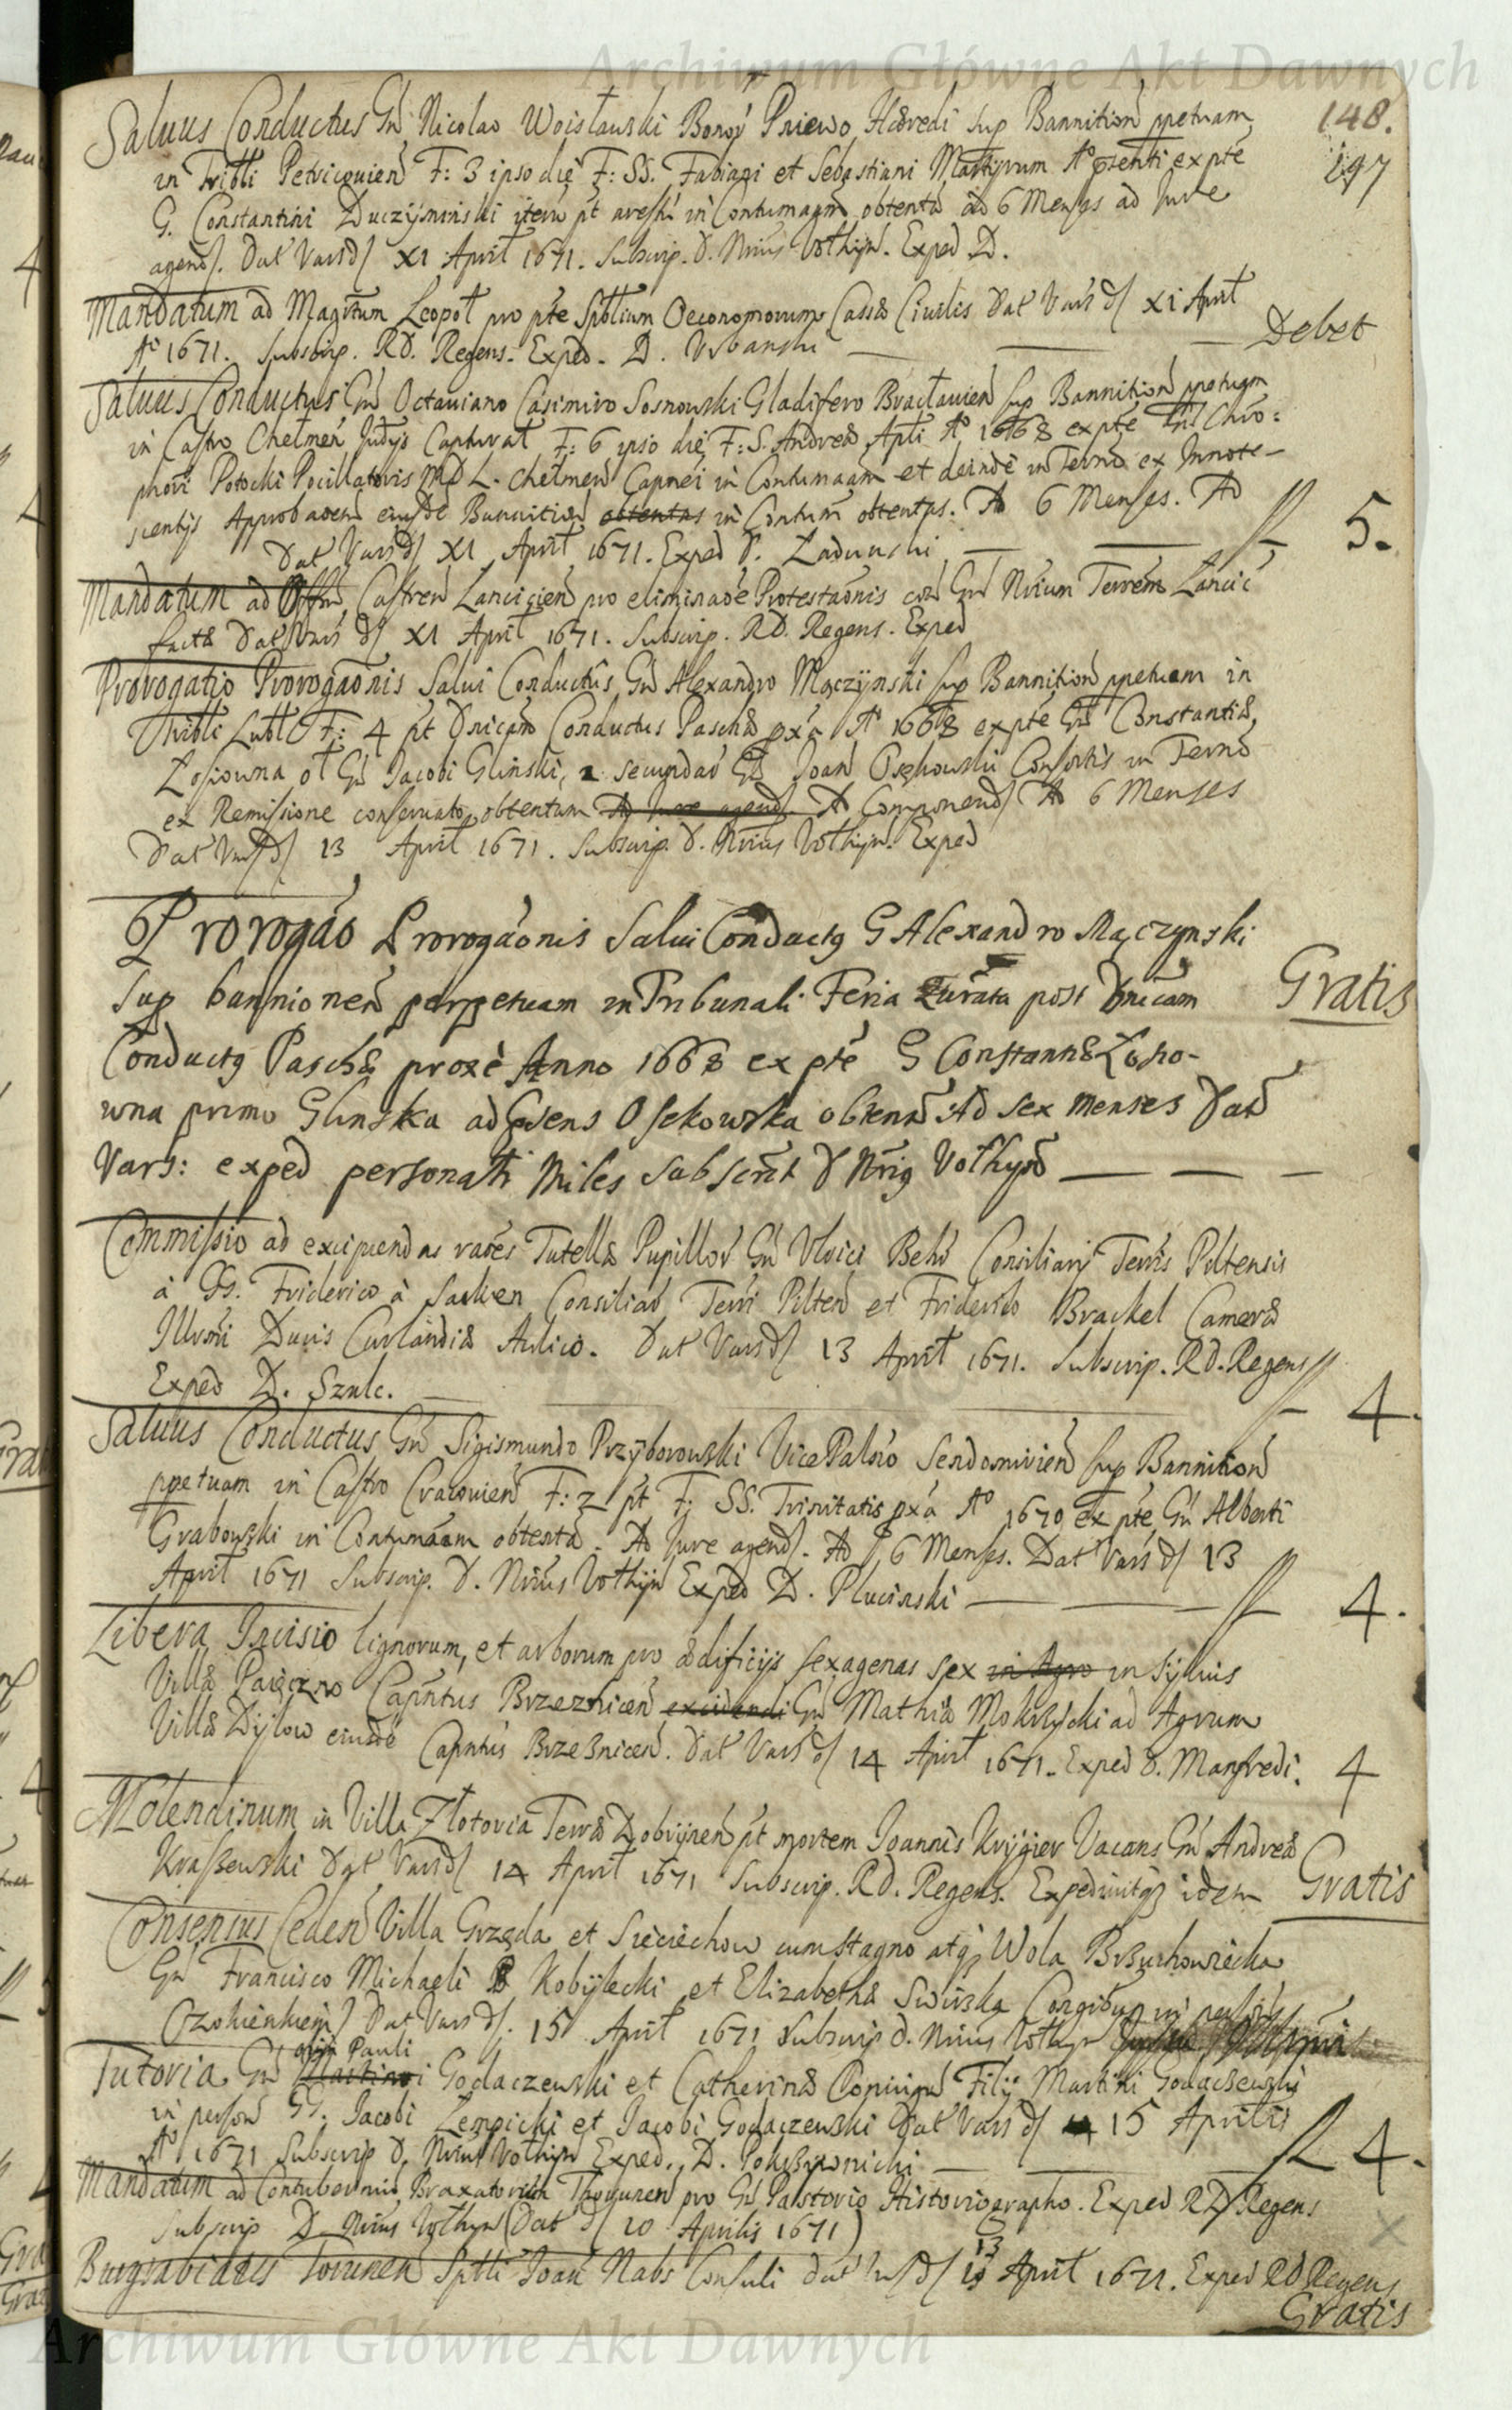 Archiwum Główne Akt Dawnych
148.
197
Saluus Conductus Gn̄ Nicolao Woisławski Bonoꝝ Pniewo Hæredi sup Bannition ppetuam
in Tribli Petricouien F: 3 ipso die F: SS. Fabiani et Sebastiani Martyrum Aō p̄senti ex pte
G. Constantini Duczyminski in Contumaam obtentā ad 6 Menses ad Jure
agend. Dat Vars d XI April 1671. Subscrip. D. Nrius Volhyn. Exped D.
Mandatum ad Magrtum Leopol pro pte Spblium Oeconomorum Cassæ Ciuilis Dat Vars d XI April
Aō 1671. Subscrip. RD. Regens. Exped. D. Vrbanski — — — Debet
Saluus Conductus Gn̄ Octauiano Casimiro Sosnowski Gladifero Bracłauien sup Bannition ppetuam
in Castro Chełmen Judijs Capturał F: 6 ipso die F: S. Andreæ Apli Aō 1668 ex pte Gn̄ Chrō=
phori Potocki Pocillatoris MDL. Chełmen Capnei in Contumaam et deinde in Termō ex Innote-
scentijs Approbaōem eiusde Bannition obtentas in Contum obtentas. Ad 6 Menses. Ad
Dat Vars d XI April 1671. Exped D. Ladunski — — 5.
Mandatum ad Offm Castren Lancicien pro eliminaōe Protestaōnis corā Gn̄ Nrium Terrem Lancic
factæ Dat Vars d XI April 1671. Subscrip. RD. Regens. Exped
Prorogatio Prorogaōnis Salui Conductus Gn̄ Alexandro Mączynski sup Bannition ppetuam in
Tribli Lubl F: 4 pt Dnicam Conductus Paschæ pxā Aō 1668 ex pte Gn̄ Constantiæ
Zosiowna ol Gn̄ Jacobi Glinski, 2 secundaō Gn̄ Joan Osękowski Consortis in Termō
ex Remissione conseruato obtentam Ad Jure agend. Ad Componend Ad 6 Menses
Dat Vars d 13 April 1671. Subscrip. D. Nrius Volhyn. Exped
Prorogāo Prorogāonis Salui Conductꝯ G Alexandro Mączynski
sup bannionem perpetuam in Tribunali Feria quarta post Dnicam Gratis
Conductꝯ Paschæ proxe Anno 1668 ex pte G Constantiæ Zosio-
wna primo Glinska ad psens Osekowska obtenta Ad sex menses Dat
Vars: exped personati Miles subscrit D Nriꝯ Volhyn — — —
Commissio ad excipiendas raōes Tutellæ Pupilloꝝ Gn̄ Vlrici Behr Consiliarij Terris Piltensis
à GG. Friderico à Sacken Consiliaō Terri Pilten et Friderico Brackel Cameræ
Illusmi Ducis Curlandiæ Aulico. Dat Vars d 13 April 1671. Subscrip. RD. Regens
Exped D. Szulc. — 4.
Saluus Conductus Gn̄ Sigismundo Przyborowski Vice Palno Sendomirien sup Bannition
ppetuam in Castro Cracouien F: 2 pt F: SS. Trinitatis pxā Aō 1670 ex pte Gn̄ Alberti
Grabowski in Contumaam obtentā. Ad Jure agend. Ad 6 Menses. Dat Vars d 13
April 1671 Subscrip. D. Nrius Volhyn Exped D. Plucinski — — — 4.
Libera Incisio lignorum, et arborum pro ædificijs sexagenas sex in Agro in Syluis
Villæ Paięczno Capntus Brzeznicen excidendi Gn̄ Mathiæ Mokrzycki ad Agrum
Villæ Dylow eiusde Capntus Brzeznicen. Dat Vars d 14 April 1671. Exped D. Manfredi. 4
Molendinum in Villa Złotoria Terræ Dobrynen pt mortem Joannis Kryger Vacans Gn̄ Andreæ
Kraszewski Dat Vars d 14 April 1671 Subscrip. RD. Regens. Expediuitqꝫ idem Gratis
Consensus Ceden Villa Grzęda et Sieciechow cum stagno atqꝫ Wola Brzuchowiecka
Gn̄ Francisco Michaeli Kobyłecki et Elizabethæ Swirska Congibus in
Dat Vars d. 15 April 1671 Subscrip D. Nrius Volhyn
Pauli
Tutoria Gn̄ Martini Godaczewski et Catherinæ Filij Martini Godaczewski
in person GG. Jacobi Zempicki et Jacobi Godaczewski Dat Vars d 14 15 Aprilis
Aō 1671 Subscrip D. Nrius Volhyn Exped. D. — — 4.
Mandatum ad Contubernium Braxatorum Thorunen pro Gn̄ Pastorio Historiographo. Exped RD Regens
Subscrip D Nrius Volhyn (Dat d 20 Aprilis 1671)
13
Burgrabiatus Torunen Sptti Joan Nabs Consuli Dat Vars d 19 April 1671. Exped RD Regens
Gratis
Archiwum Główne Akt Dawnych